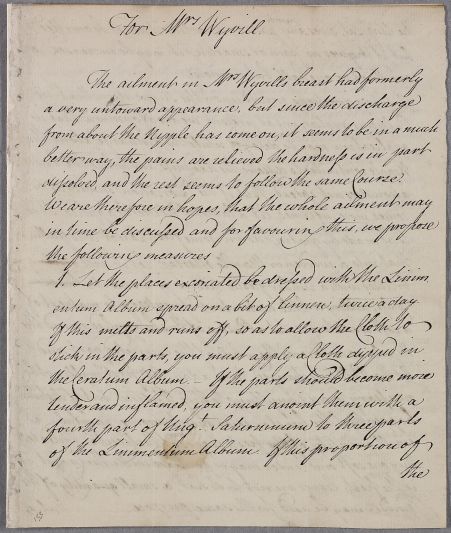 For Mrs Wyvill.
The ailment in Mrs Wyvills breast had formerly
a very untoward appearance, but since the discharge
from about the Nipple has come on, it seems to be in a much
better way, the pains are relieved the hardness is in part
dissolved, and the rest seems to follow the same Course.
We are therefore in hopes, that the whole ailment may
in time be discussed and for favouring this, we propose
the following measures
1. Let the places excoriated be dressed with the Linim
entum Album spread on a bit of linnen, twice a day
If this melts and runs off, so as to allow the Cloth to
stick in the parts, you must apply a Cloth dipped in
the Ceratum Album. – If the parts should become more
tender and inflamed, you must anoint them with a
fourth part of Ung. Saturninum to three parts
of the Linimentum Album. If this proportion of
the